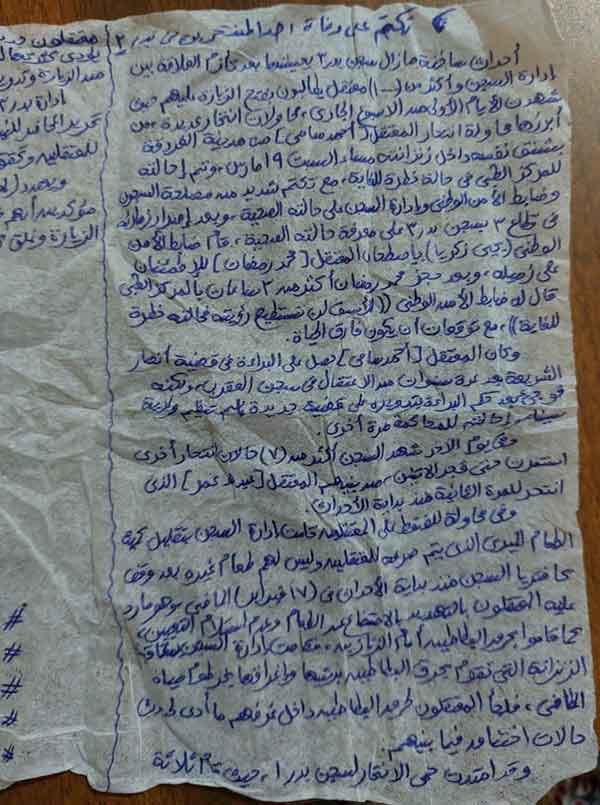 تكتم على وفاة أحد المعتقلين في بدر ٣
أحداث ساخنة مازال سجن بدر ٣ يعيشها بعد تأزم العلاقة بين
إدارة السجن وأكثر من (١٠٠) معتقل يطالبون بفتح الزيارة عليهم حيث
شهدت الأيام الأولى من الأسبوع الجاري، محاولات انتحار عديدة من
أبرزها محاولة انتحار المعتقل [أحمد سامي] من مدينة الغردقة
بشنق نفسه داخل زنزانته مساء السبت ١٩ مارس، وتم إحالته
للمركز الطبي في حالة خطرة للغاية، مع تكتم شديد من مصلحة السجون
وضابط الأمن الوطني وإدارة السجن على حالته الصحية، وبعد إصرار زملائه
في قطاع ٣ بسجن بدر ٣ على معرفة حالته الصحية، قام ضابط الأمن
الوطني (يحيى زكريا) باصطحاب المعتقل [محمد رمضان] للاطمئنان
على زميله، وبعد حجز محمد رمضان أكثر من ٣ ساعات بالمركز الطبي
قال له ضابط الأمن الوطني ((للأسف لن تستطيع رؤيته فحالته خطرة
للغاية))، مع توقعات أن يكون فارق الحياة.
وكان المعتقل [أحمد سامي] حصل على البراءة في قضية أنصار
الشريعة بعد عدة سنوات من الاعتقال في سجن العقرب، ولكنه
فوجئ بعد حكم البراءة بتدويره على قضية جديدة باسم تنظيم ولاية
سيناء، إحالته للمحاكمة مرة أخرى.
وفي يوم الأحد شهد السجن أكثر من (٧) حالات انتحار أخرى
استمرت حتى فجر الاثنين، من بينهم المعتقل [عبد عمر] الذي
انتحر للمرة الثانية منذ بداية الأحداث.
وفي محاولة للضغط على المعتقلين قامت إدارة السجن بتقليل كمية
الطعام الميري الذي يتم صرفه للمعتقلين وليس لهم طعام غيره بعد وقف
كافتريا السجن منذ بداية الأحداث في (١٧ فبراير) الماضي، وهو ما رد
عليه المعتقلون بالتهديد بالامتناع عن الطعام وعدم استلام التعيين،
كما قاموا بحرق البطاطين أمام الزنازين، فقامت إدارة السجن
الزنزانة التي تقوم بحرق البطاطين برشها وإغراقها بخرطوم مياه
المطافئ، فلجأ المعتقلون لحرق البطاطين داخل غرفهم ما أدى لحدوث
حالات اختناق فيما بينهم.
وقد امتدت حمى الانتحار لسجن بدر ١، حيث قام ثلاثة
معتقلون
منذ الزيارة
إدارة بدر ٣
للمعتقلين
الزيارة
#
#
#
#
#